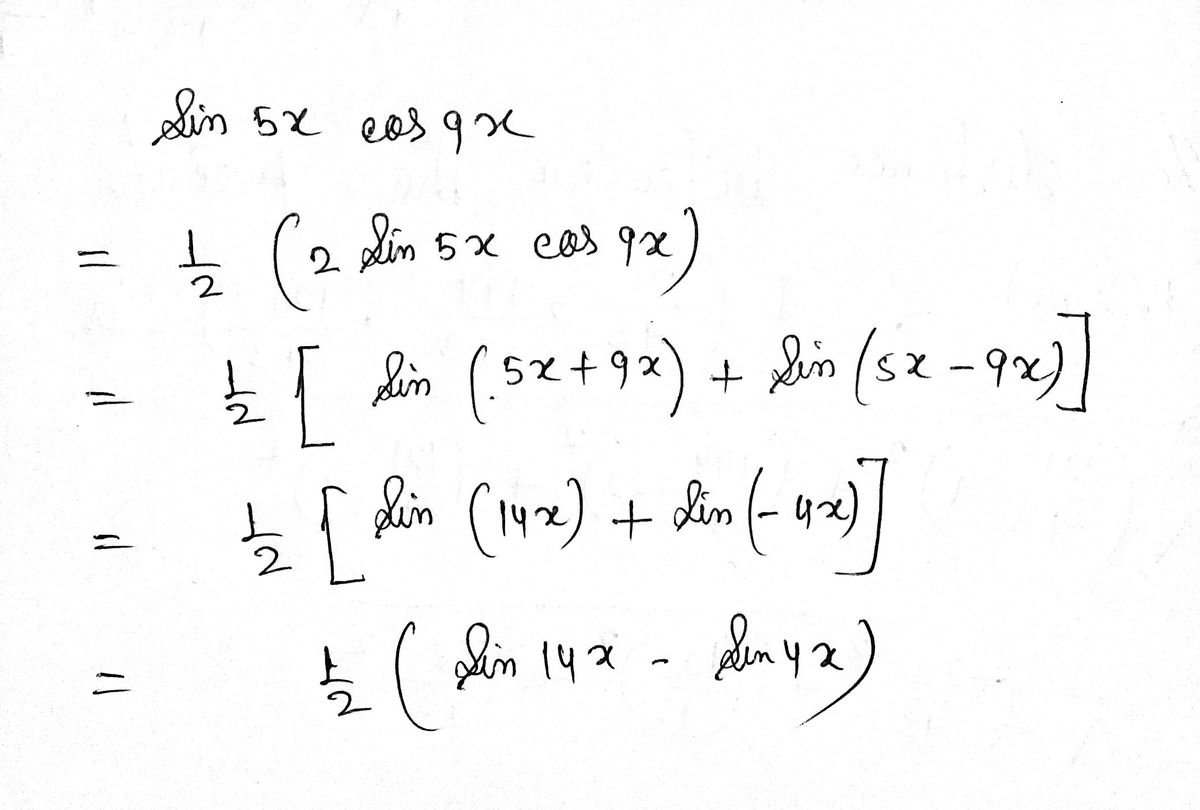 sin 5x cos 9x
= 1/2 (2 sin 5x cos 9x)
= 1/2 [ sin (5x+9x) + sin (5x-9x)]
= 1/2 [ sin (14x) + sin (-4x)]
= 1/2 ( sin 14x - sin 4x)